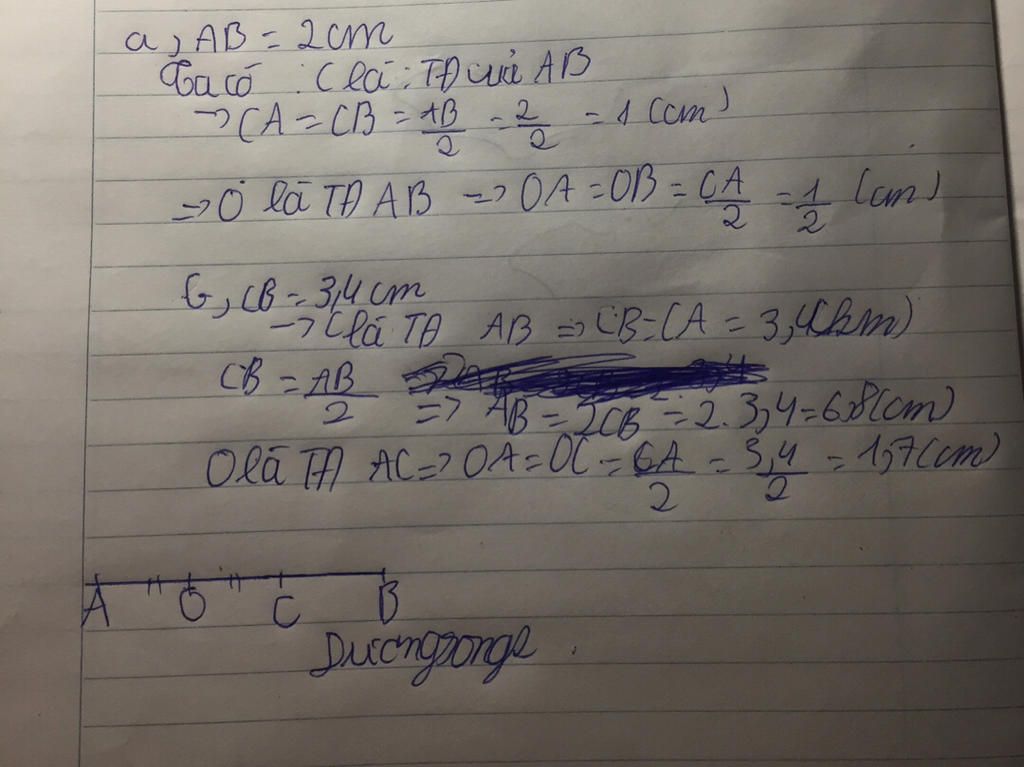 a, AB = 2cm
Ta có : C là : TĐ của AB
→ CA = CB = AB/2 = 2/2 = 1 (cm)
=> O là TĐ AB => OA = OB = CA/2 = 1/2 (cm)
b, CB = 3,4 cm
→ C là TĐ AB => CB = CA = 3,4 (km)
CB = AB/2 => AB = 2CB = 2. 3,4 = 6,8 (cm)
O là TĐ AC => OA = OC = CA/2 = 3,4/2 = 1,7 (cm)
A O C B
Duongsongs